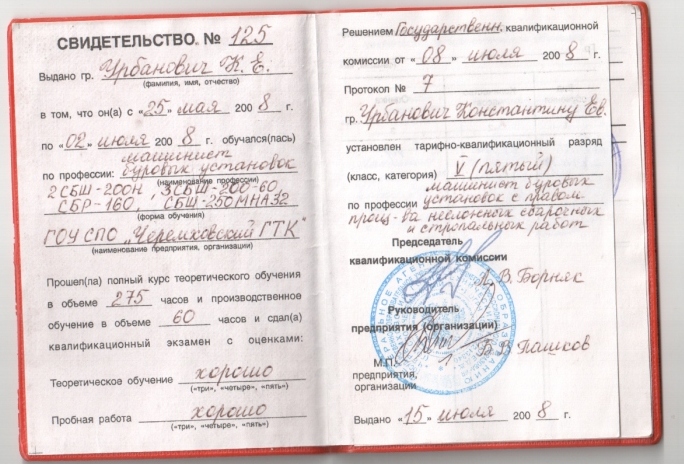 СВИДЕТЕЛЬСТВО № 125
Выдано гр. Урбанович К. Е.
(фамилия, имя, отчество)
в том, что он(а) с «25» мая 200 8 г.
по «02» июля 200 8 г. обучался(лась)
машинист
по профессии: буровых установок
(наименование профессии)
2СБШ-200Н, 3СБШ-200-60,
СБР-160, СБШ-250МНА32
(форма обучения)
ГОУ СПО „Черемховский ГТК"
(наименование предприятия, организации)
Прошел(ла) полный курс теоретического обучения
в объеме 275 часов и производственное
обучение в объеме 60 часов и сдал(а)
квалификационный экзамен с оценками:
Теоретическое обучение хорошо
(«три», «четыре», «пять»)
Пробная работа хорошо
(«три», «четыре», «пять»)
Решением Государственн. квалификационной
комиссии от «08» июля 200 8 г.
Протокол № 7
гр. Урбанович Константину Ев.
установлен тарифно-квалификационный разряд
(класс, категория) V (пятый)
машинист буровых
по профессии установок с правом
произ-ва несложных сварочных
и стропальных работ
Председатель
квалификационной комиссии
Л. В. Борняк
Руководитель
предприятия (организации)
В. В Пашков
М.П.
предприятия,
организации
Выдано «15» июля 200 8 г.